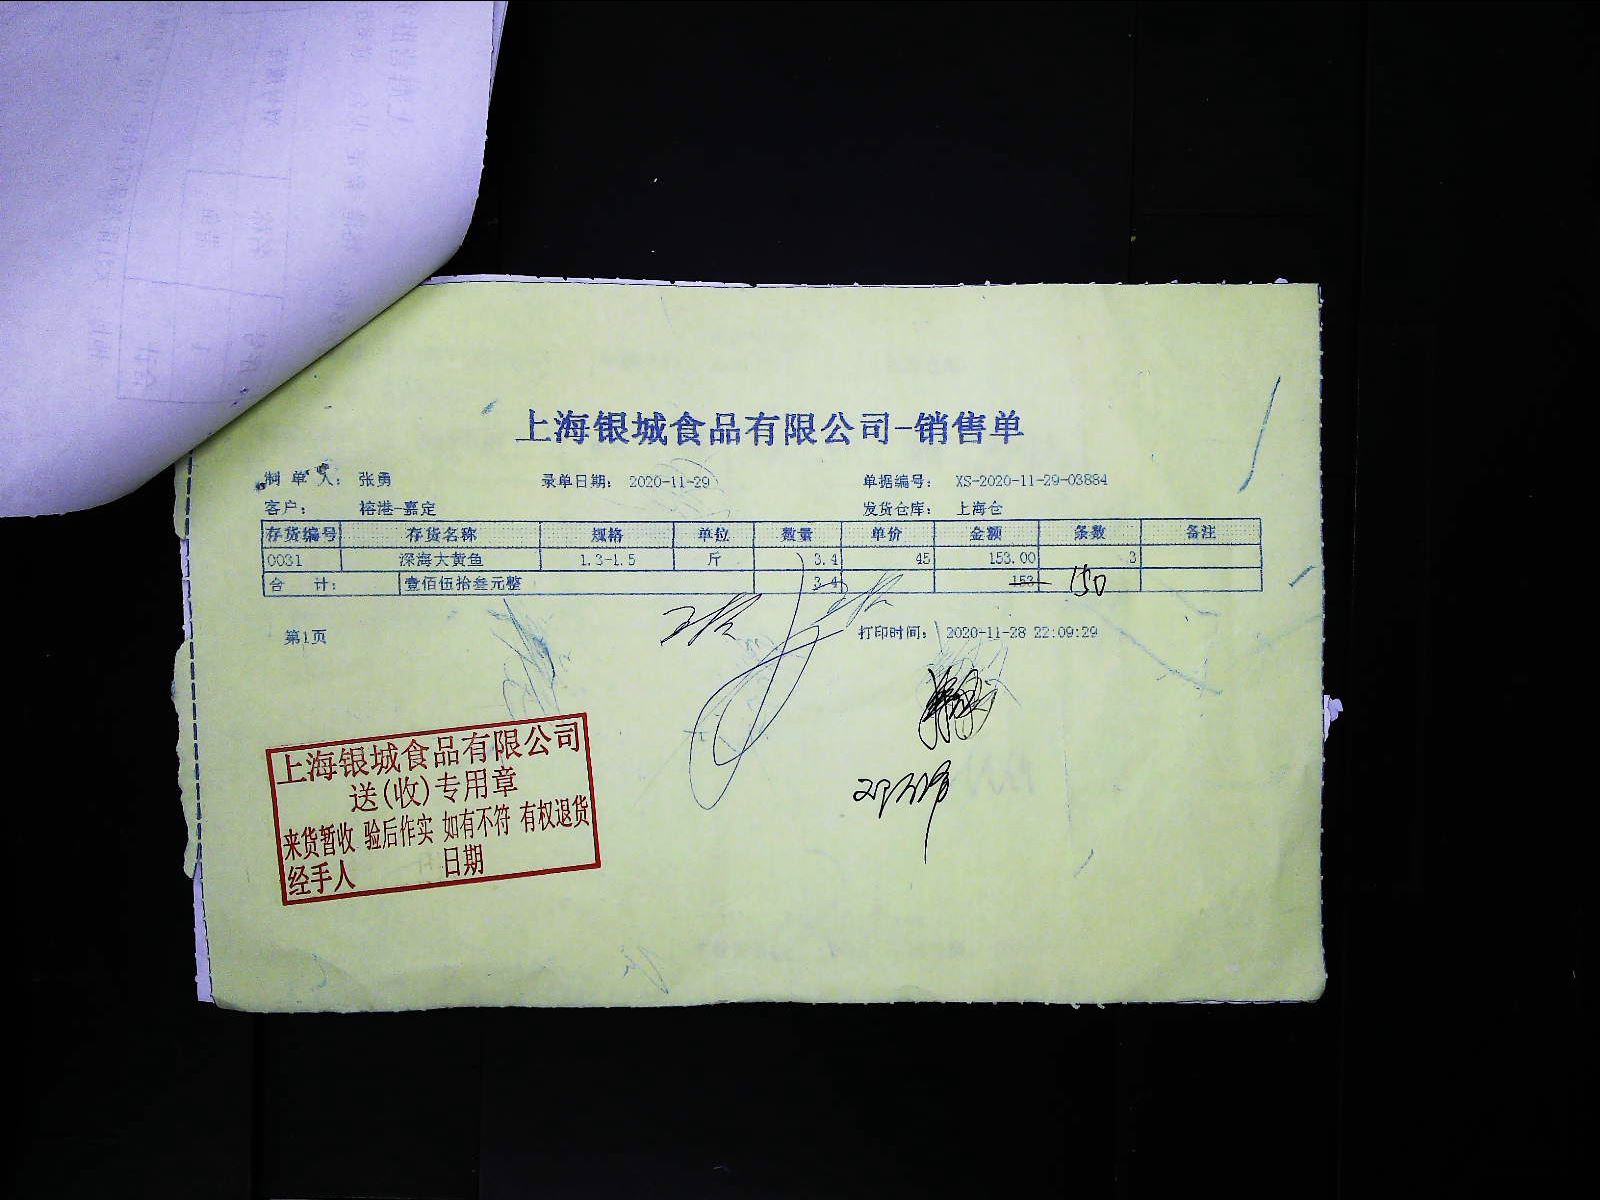 上海银城食品有限公司-销售单
制 单 人： 张勇 录单日期： 2020-11-29 单据编号： XS-2020-11-29-03884
客户： 榕港-嘉定 发货仓库： 上海仓
存货编号 存货名称 规格 单位 数量 单价 金额 条数 备注
0031 深海大黄鱼 1.3-1.5 斤 3.4 45 153.00 3
合 计： 壹佰伍拾叁元整 3.4 153 150
第1页 打印时间： 2020-11-28 22:09:29
上海银城食品有限公司
送(收)专用章
来货暂收 验后作实 如有不符 有权退货
经手人 日期